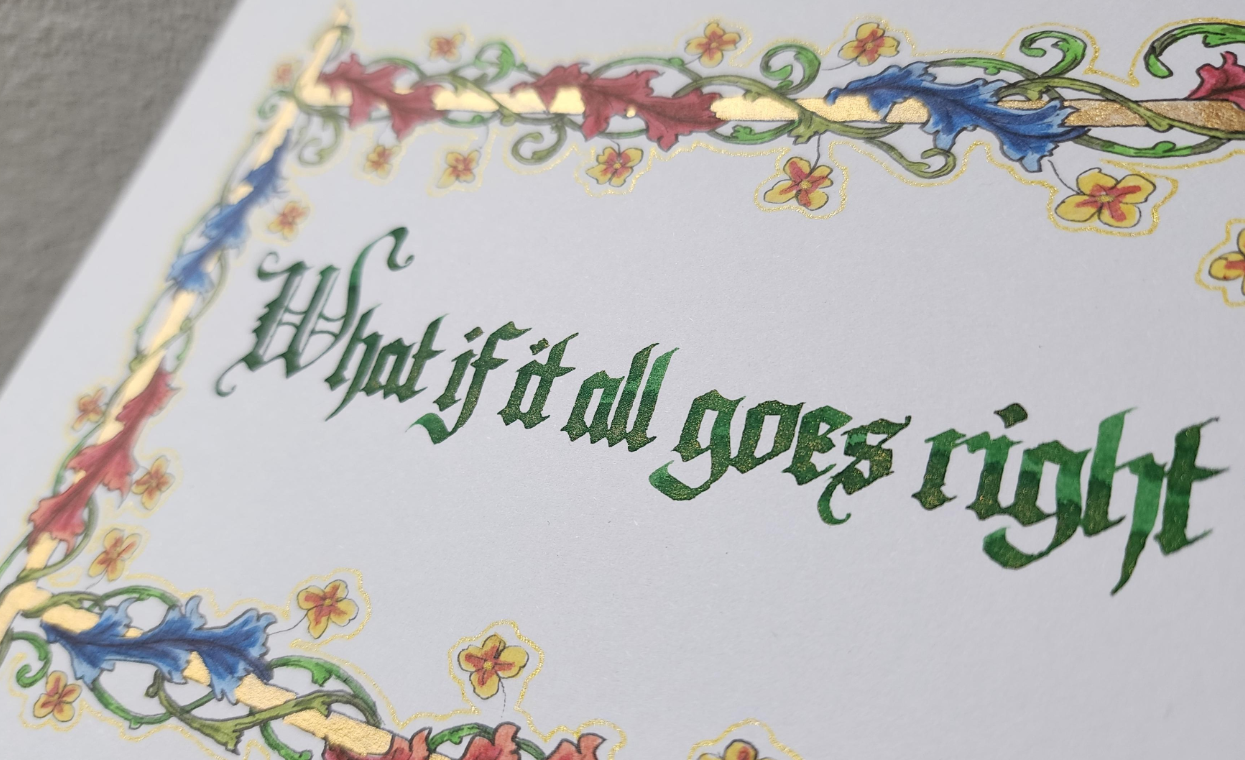 What if it all goes right